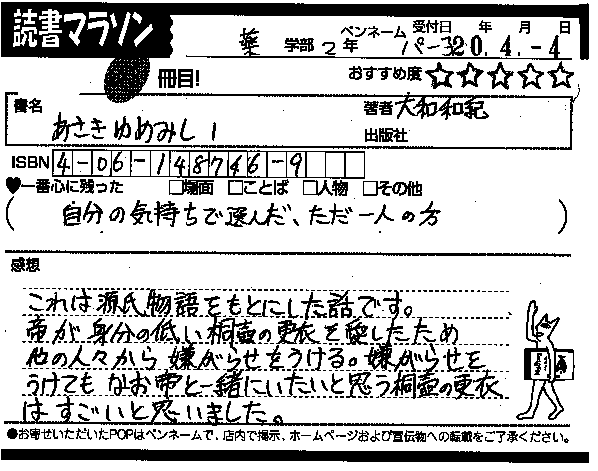 読書マラソン
薬 学部 2 年 ペンネーム パーコ 受付日 年 月 日
20.4.-4
冊目!
おすすめ度 ☆☆☆☆☆
書名 あさきゆめみし 1
著者 大和和紀
出版社
ISBN 4-06-148746-9
♥一番心に残った □場面 □ことば □人物 □その他
( 自分の気持ちで選んだ、ただ一人の方 )
感想
これは源氏物語をもとにした話です。
帝が身分の低い桐壺の更衣を愛したため
他の人々から嫌がらせをうける。嫌がらせを
うけてもなお帝と一緒にいたいと思う桐壺の更衣
はすごいと思いました。
●お寄せいただいたPOPはペンネームで、店内で掲示、ホームページおよび宣伝物への転載をご了承ください。